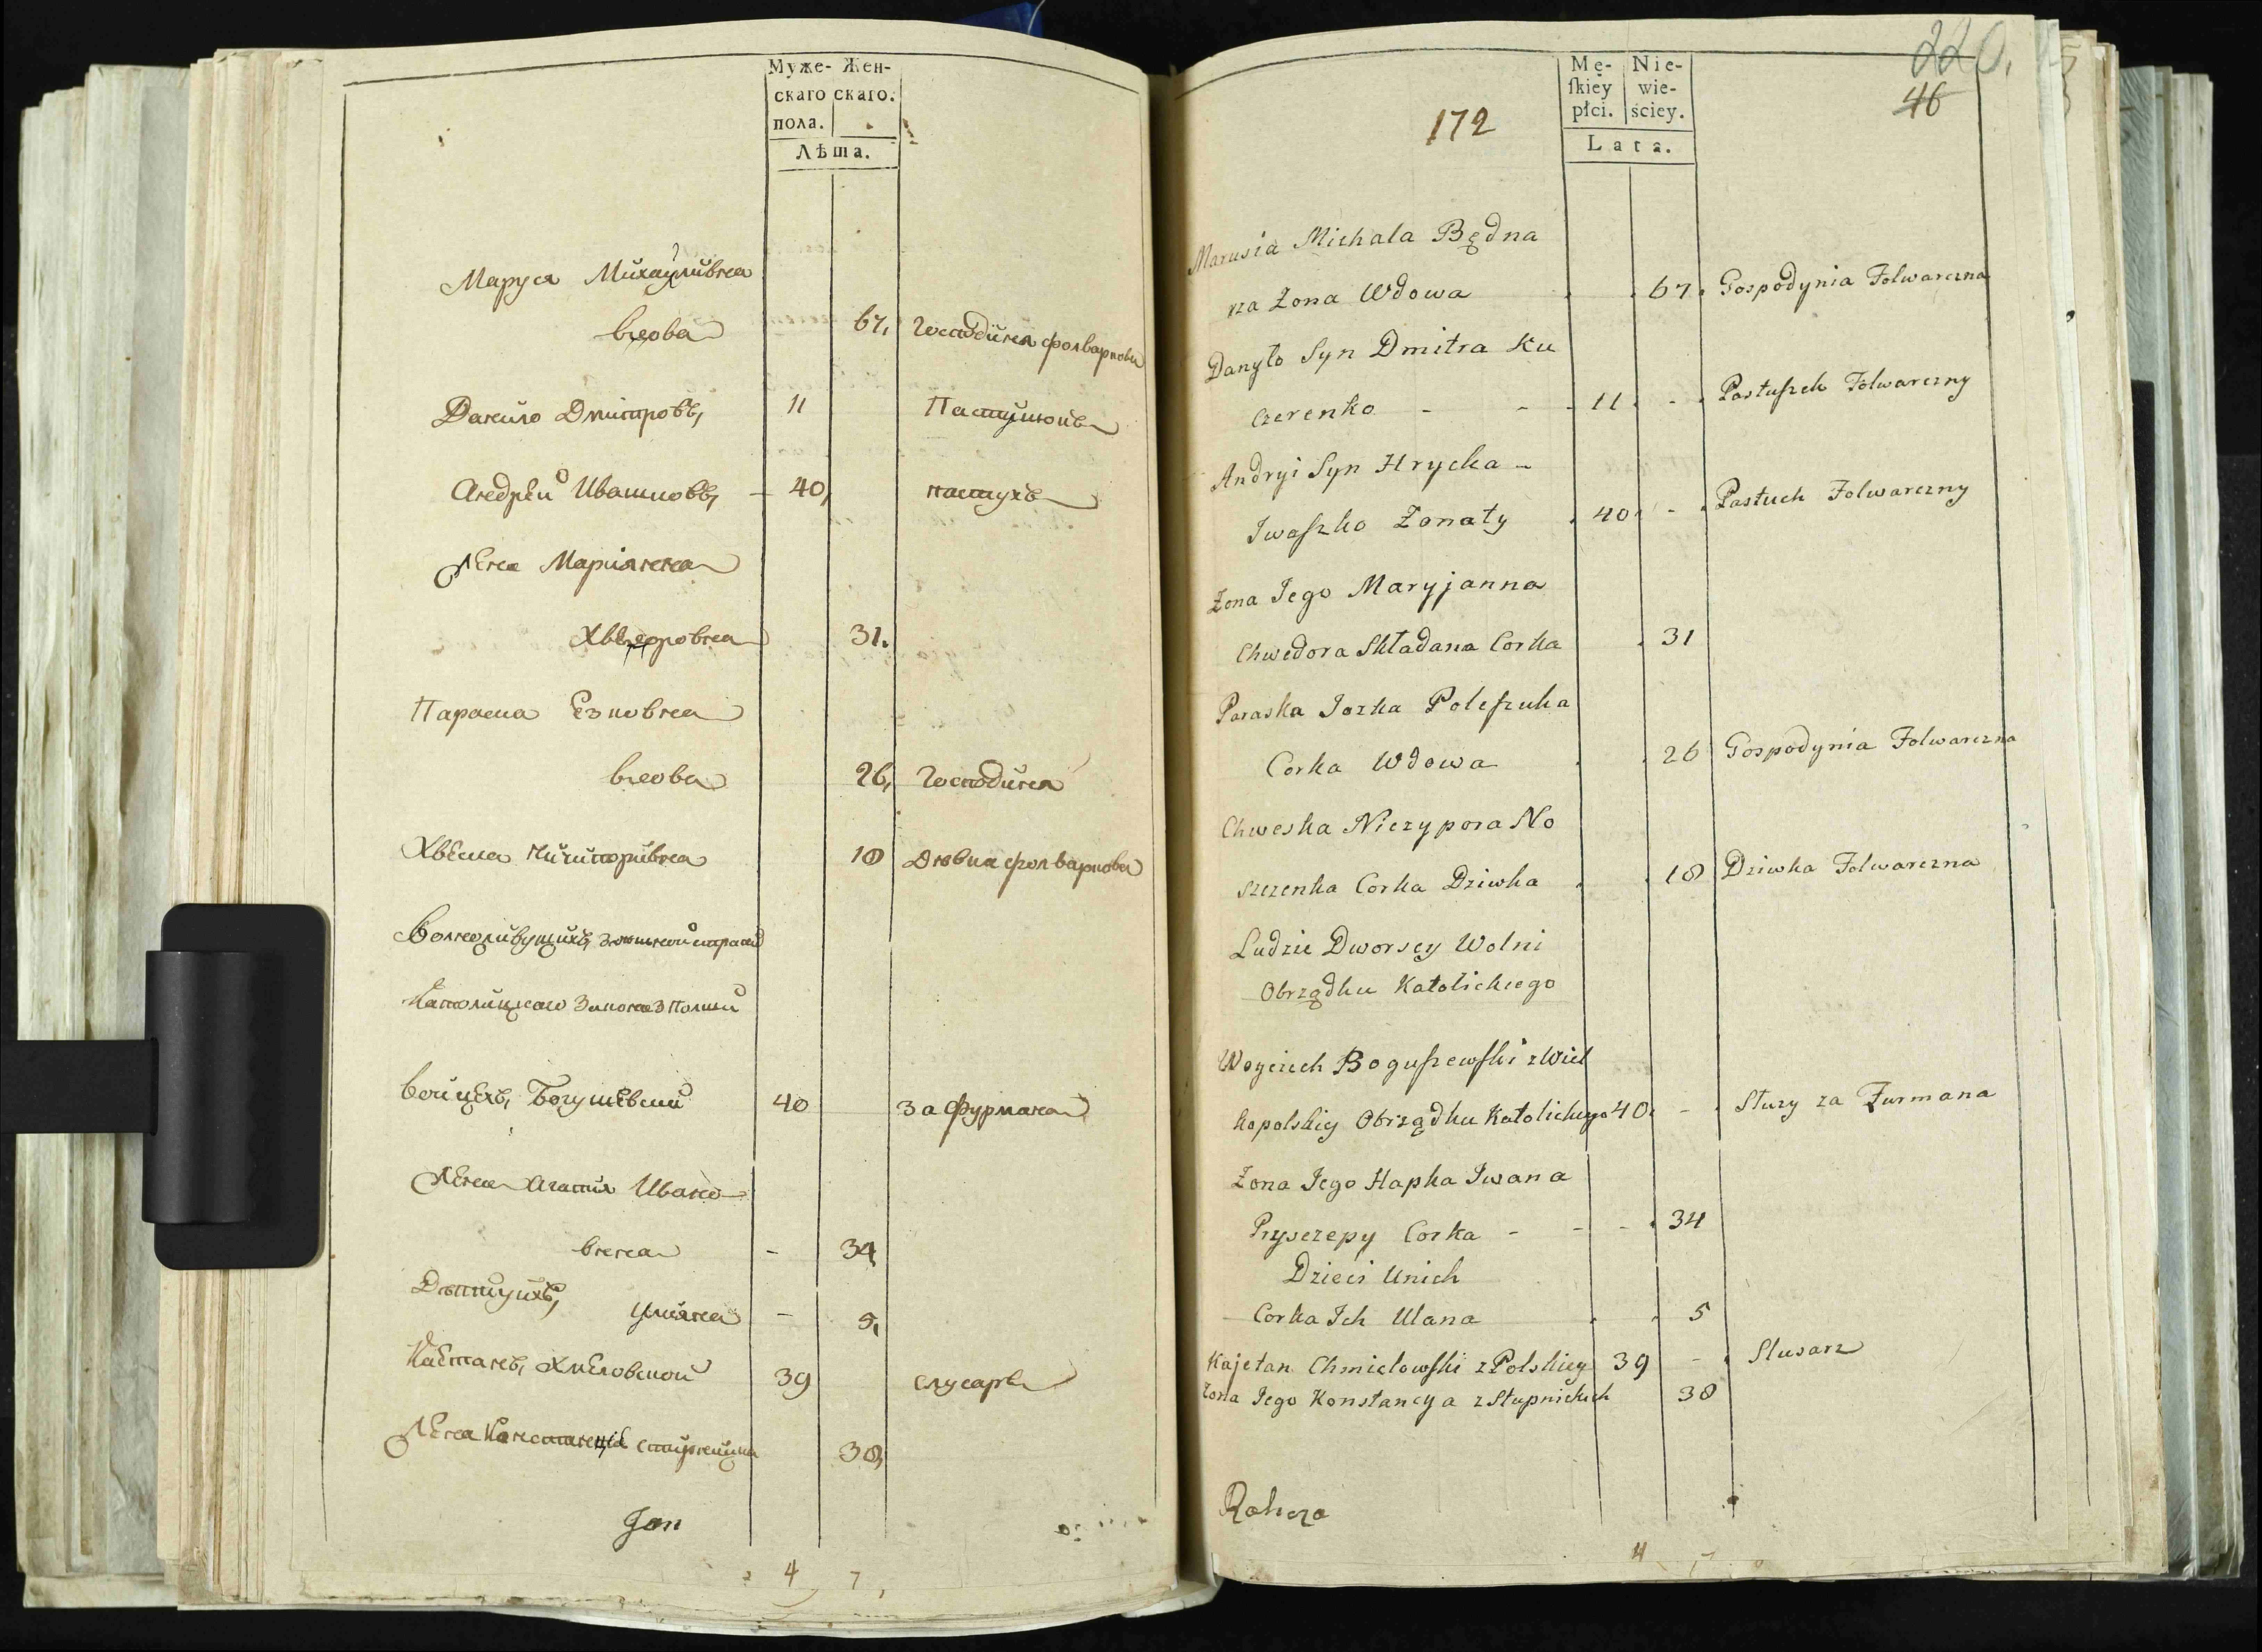 Муже- Жен-
скаго скаго.
пола.
Лѣта.
Маруся Михаиливна
вдова 67, Господиня фолваркова
Данило Дмитровъ, 11 Пастушокъ
Андрѣй Ивашковъ, - 40, пастухъ
Жена Маріянна
Хведоровна 31.
Параска Езковна
вдова 26, Господиня
Хвеска Ничипоривна 18 Дювка фолваркова
Католицкаго
Войцехъ, Богушевский 40 за фурмана
Жена Агапия Ивано
вна - 34
Уляна - 5,
Каетанъ, Хмеловский 39 слусаръ
Жена Констанція 38,
Jan
4 7,
220.
46
172
Mę- Nie-
ſkiey wie-
płci. ściey.
Lata.
Marusia Michala Będna
rza Zona Wdowa 67. Gospodynia Folwarczna
Danyło Syn Dmitra Ku
czerenko - - 11. - Pastuſzek Folwarczny
Andryi Syn Hrycka -
Iwaſzko Zonaty 40. - Pastuch Folwarczny
Zona Iego Maryjanna
Chwedora Składana Corka 31
Paraska Iozka Poleſzuka
Corka Wdowa 26 Gospodynia Folwarczna
Chweska Niczypora No
szczenka Corka Dziwka 18 Dziwka Folwarczna
Ludzie Dworscy Wolni
Obrządku Katolickiego
Woyciech Boguſzewſki z Wiel
kopolskiy Obrządku Katolickiego 40. - Służy za Furmana
Zona Iego Hapka Iwana
Pryszczepy Corka - - - 34
Dzieci Unich
Corka Ich Ulana 5
Kajetan Chmielowſki z Polskiey 39 - Slusarz
Zona Iego Konstancya z Stupnickich 38
4 7